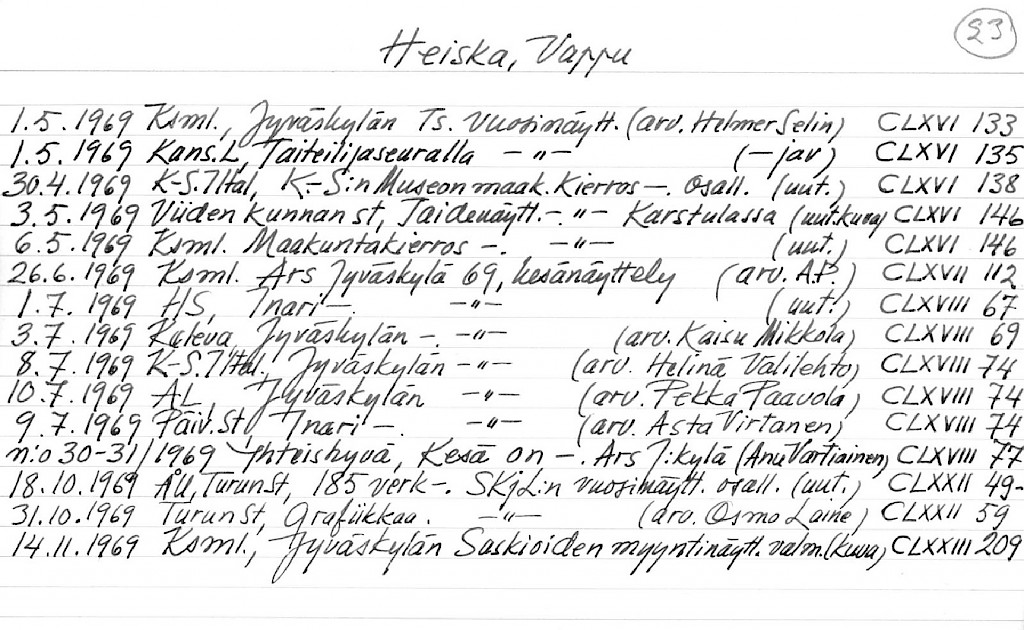 23
Heiska, Vappu
1.5.1969 Ksml., Jyväskylän Ts. vuosinäytt. (arv. Helmer Selin) CLXVI 133
1.5.1969 Kans.L, Taiteilijaseuralla -"- (-jav) CLXVI 135
30.4.1969 K-S.Iltal, K-S:n Museon maak.kierros-. osall. (uut.) CLXVI 138
3.5.1969 Viiden kunnan st, Taidenäytt.- -"- Karstulassa (uut.kuva) CLXVI 146
6.5.1969 Ksml. Maakuntakierros -. -"- (uut.) CLXVI 146
26.6.1969 Ksml. Ars Jyväskylä 69, kesänäyttely (arv. A.P.) CLXVII 112
1.7.1969 HS, Inari-. -"- (uut.) CLXVIII 67
3.7.1969 Kaleva Jyväskylän -. -"- (arv. Kaisu Mikkola) CLXVIII 69
8.7.1969 K-S.Iltal, Jyväskylän -"- (arv. Helinä Välilehto) CLXVIII 74
10.7.1969 AL, Jyväskylän -"- (arv. Pekka Paavola) CLXVIII 74
9.7.1969 Päiv.St, Inari-. -"- (arv. Asta Virtanen) CLXVIII 74
n:o 30-31/1969 Yhteishyvä, Kesä on -. Ars J:kylä (Anu Vartiainen) CLXVIII 77
18.10.1969 ÅU, TurunSt, 185 verk-. SKjL:n vuosinäytt. osall. (uut.) CLXXII 49-
31.10.1969 TurunSt, Grafiikkaa. -"- (arv. Osmo Laine) CLXXII 59
14.11.1969 Ksml., Jyväskylän Saskioiden myyntinäytt. valm. (kuva) CLXXIII 209